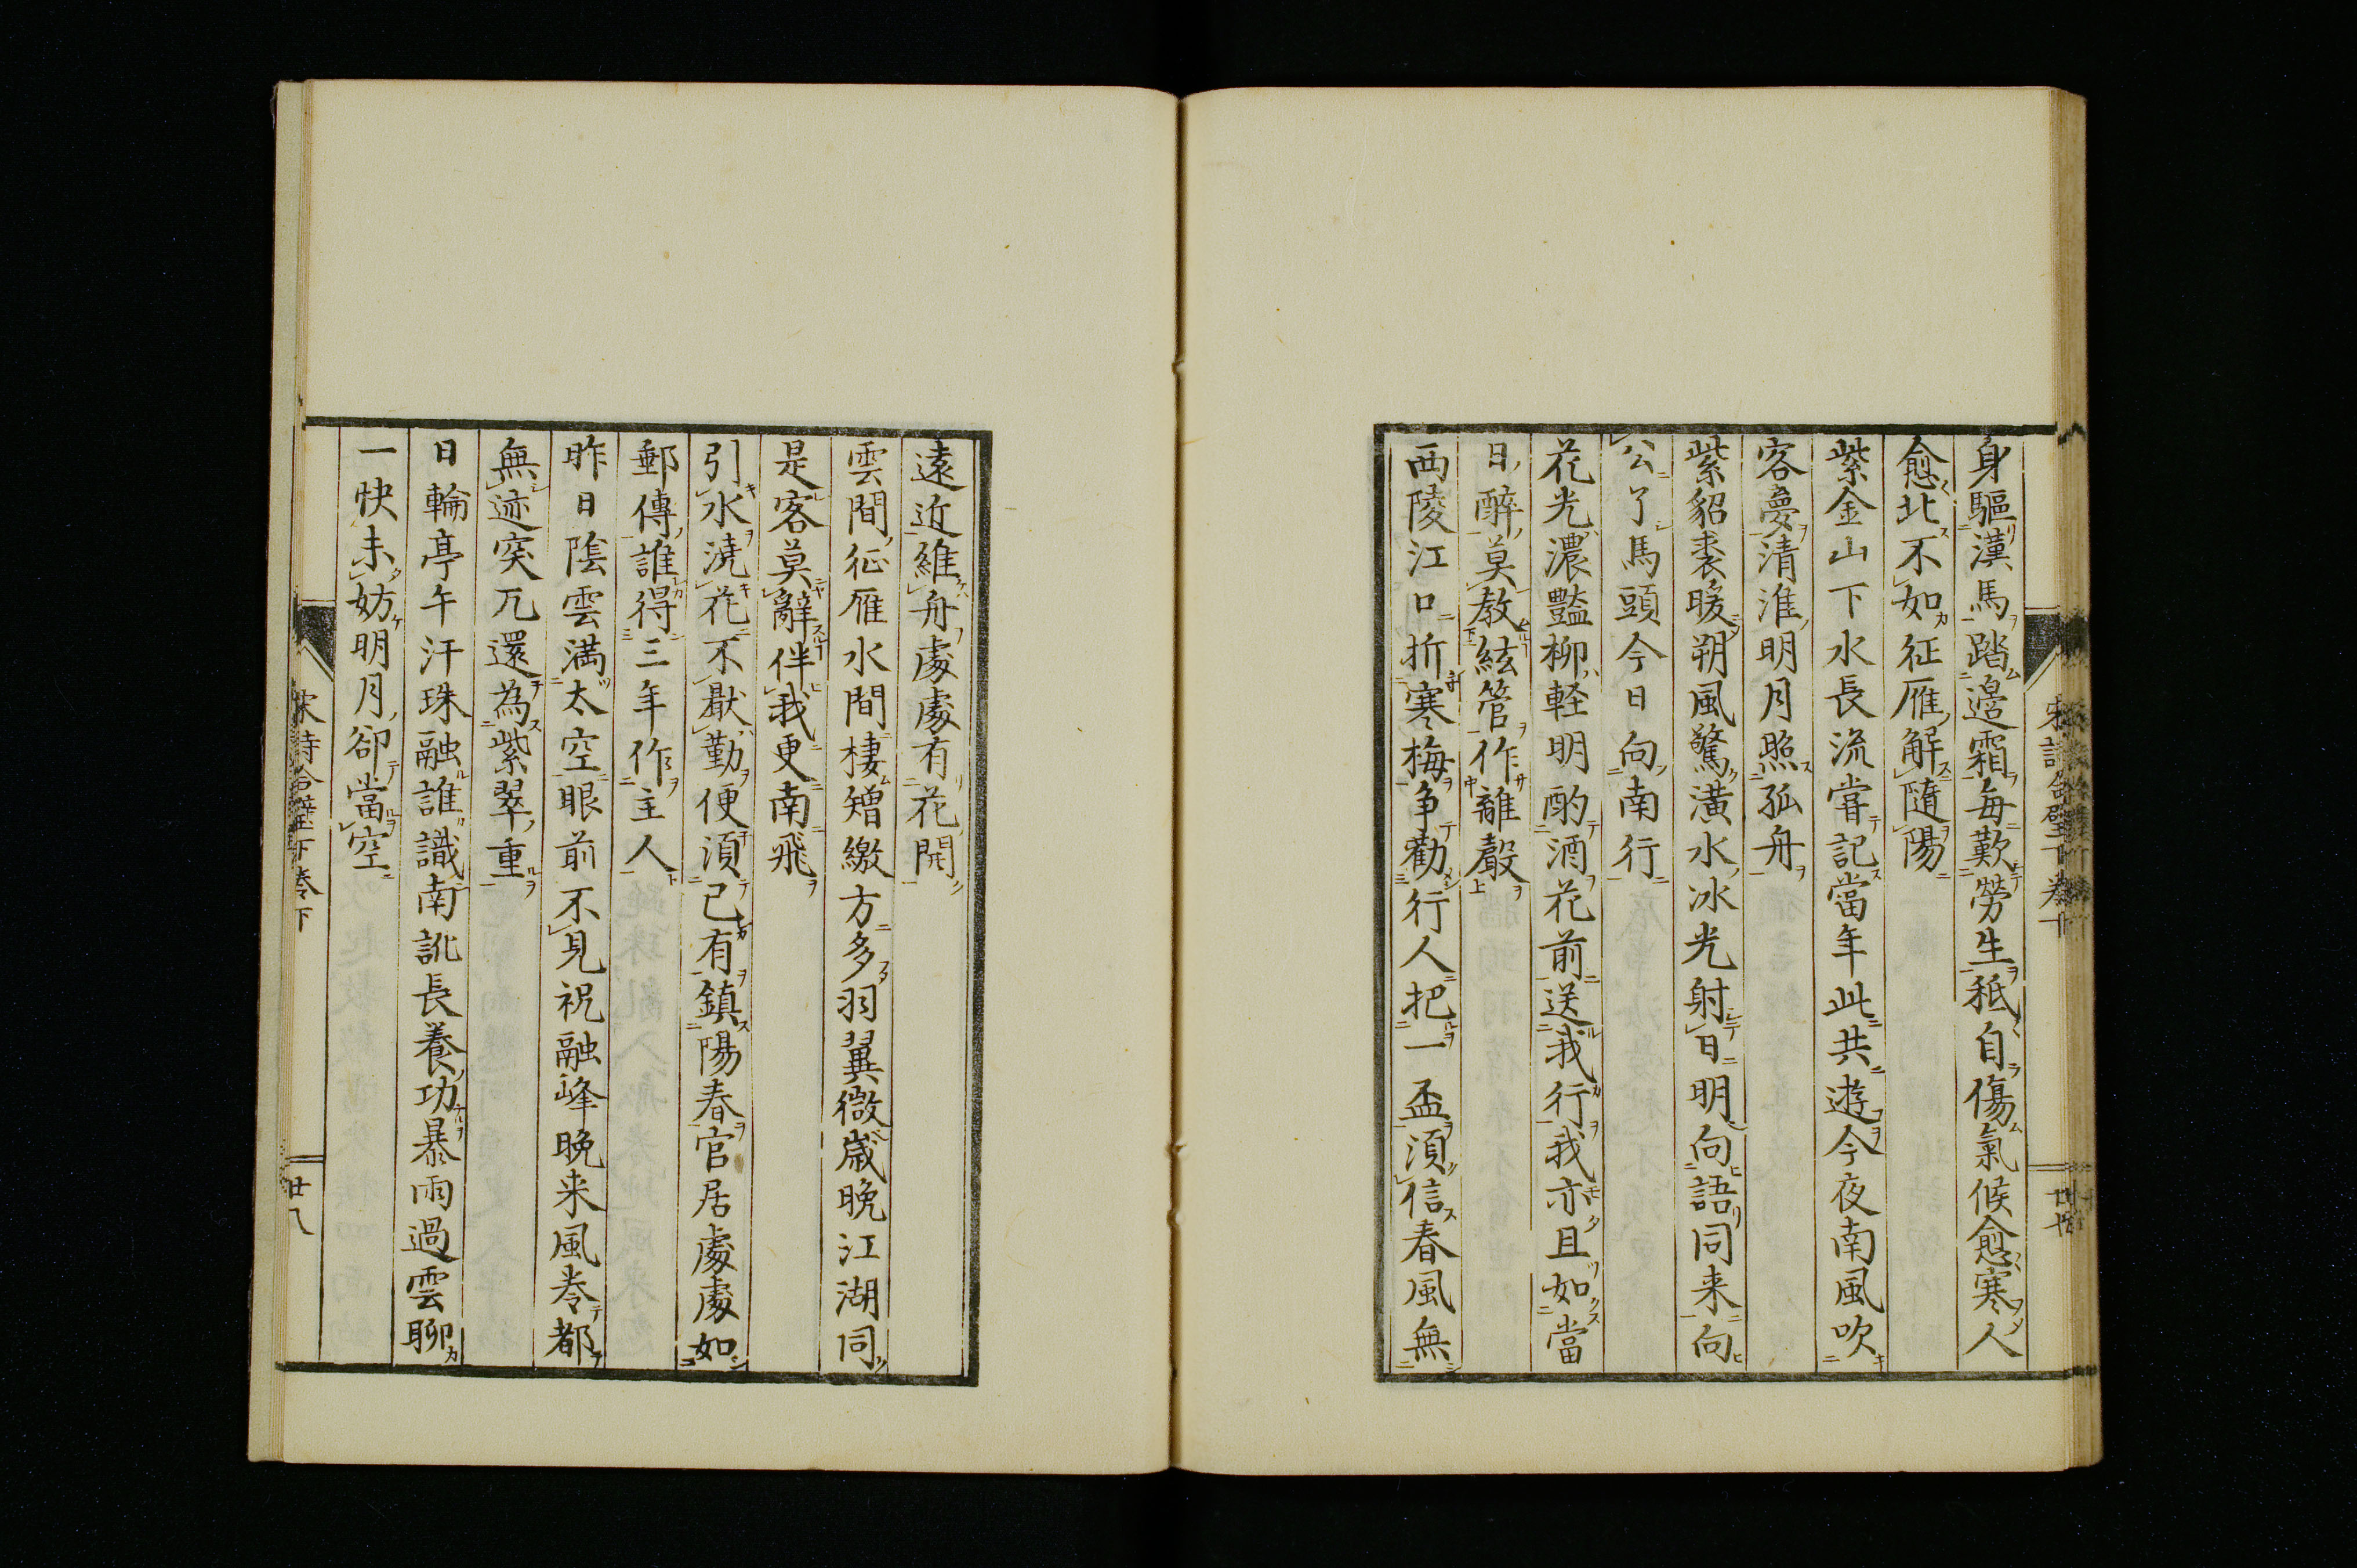 身驅漢馬踏邉霜每歎勞生秪自傷氣候愈寒人
愈北不如征雁解隨陽
紫金山下水長流嘗記當年此共遊今夜南風吹
客夢清淮明月照孤舟
紫貂裘暖朔風驚潢水冰光射日明向語同来向
公了馬頭今日向南行
花光濃豔柳軽明酌酒花前送我行我亦且如當
日醉莫教絃管作離聲
西陵江口折寒梅争勸行人把一盃須信春風無
遠近維舟處處有花開
雲間征雁水間棲矰繳方多羽翼微歳晚江湖同
是客莫辭伴我更南飛
引水澆花不厭勤便須已有鎮陽春官居處處如
郵傳誰得三年作主人
昨日陰雲満太空眼前不見祝融峰晚来風巻都
無迹突兀還為紫翠重
日輪亭午汗珠融誰識南訛長養功暴雨過雲聊
一快未妨明月卻當空
宋詩合璧下巻下
廿八